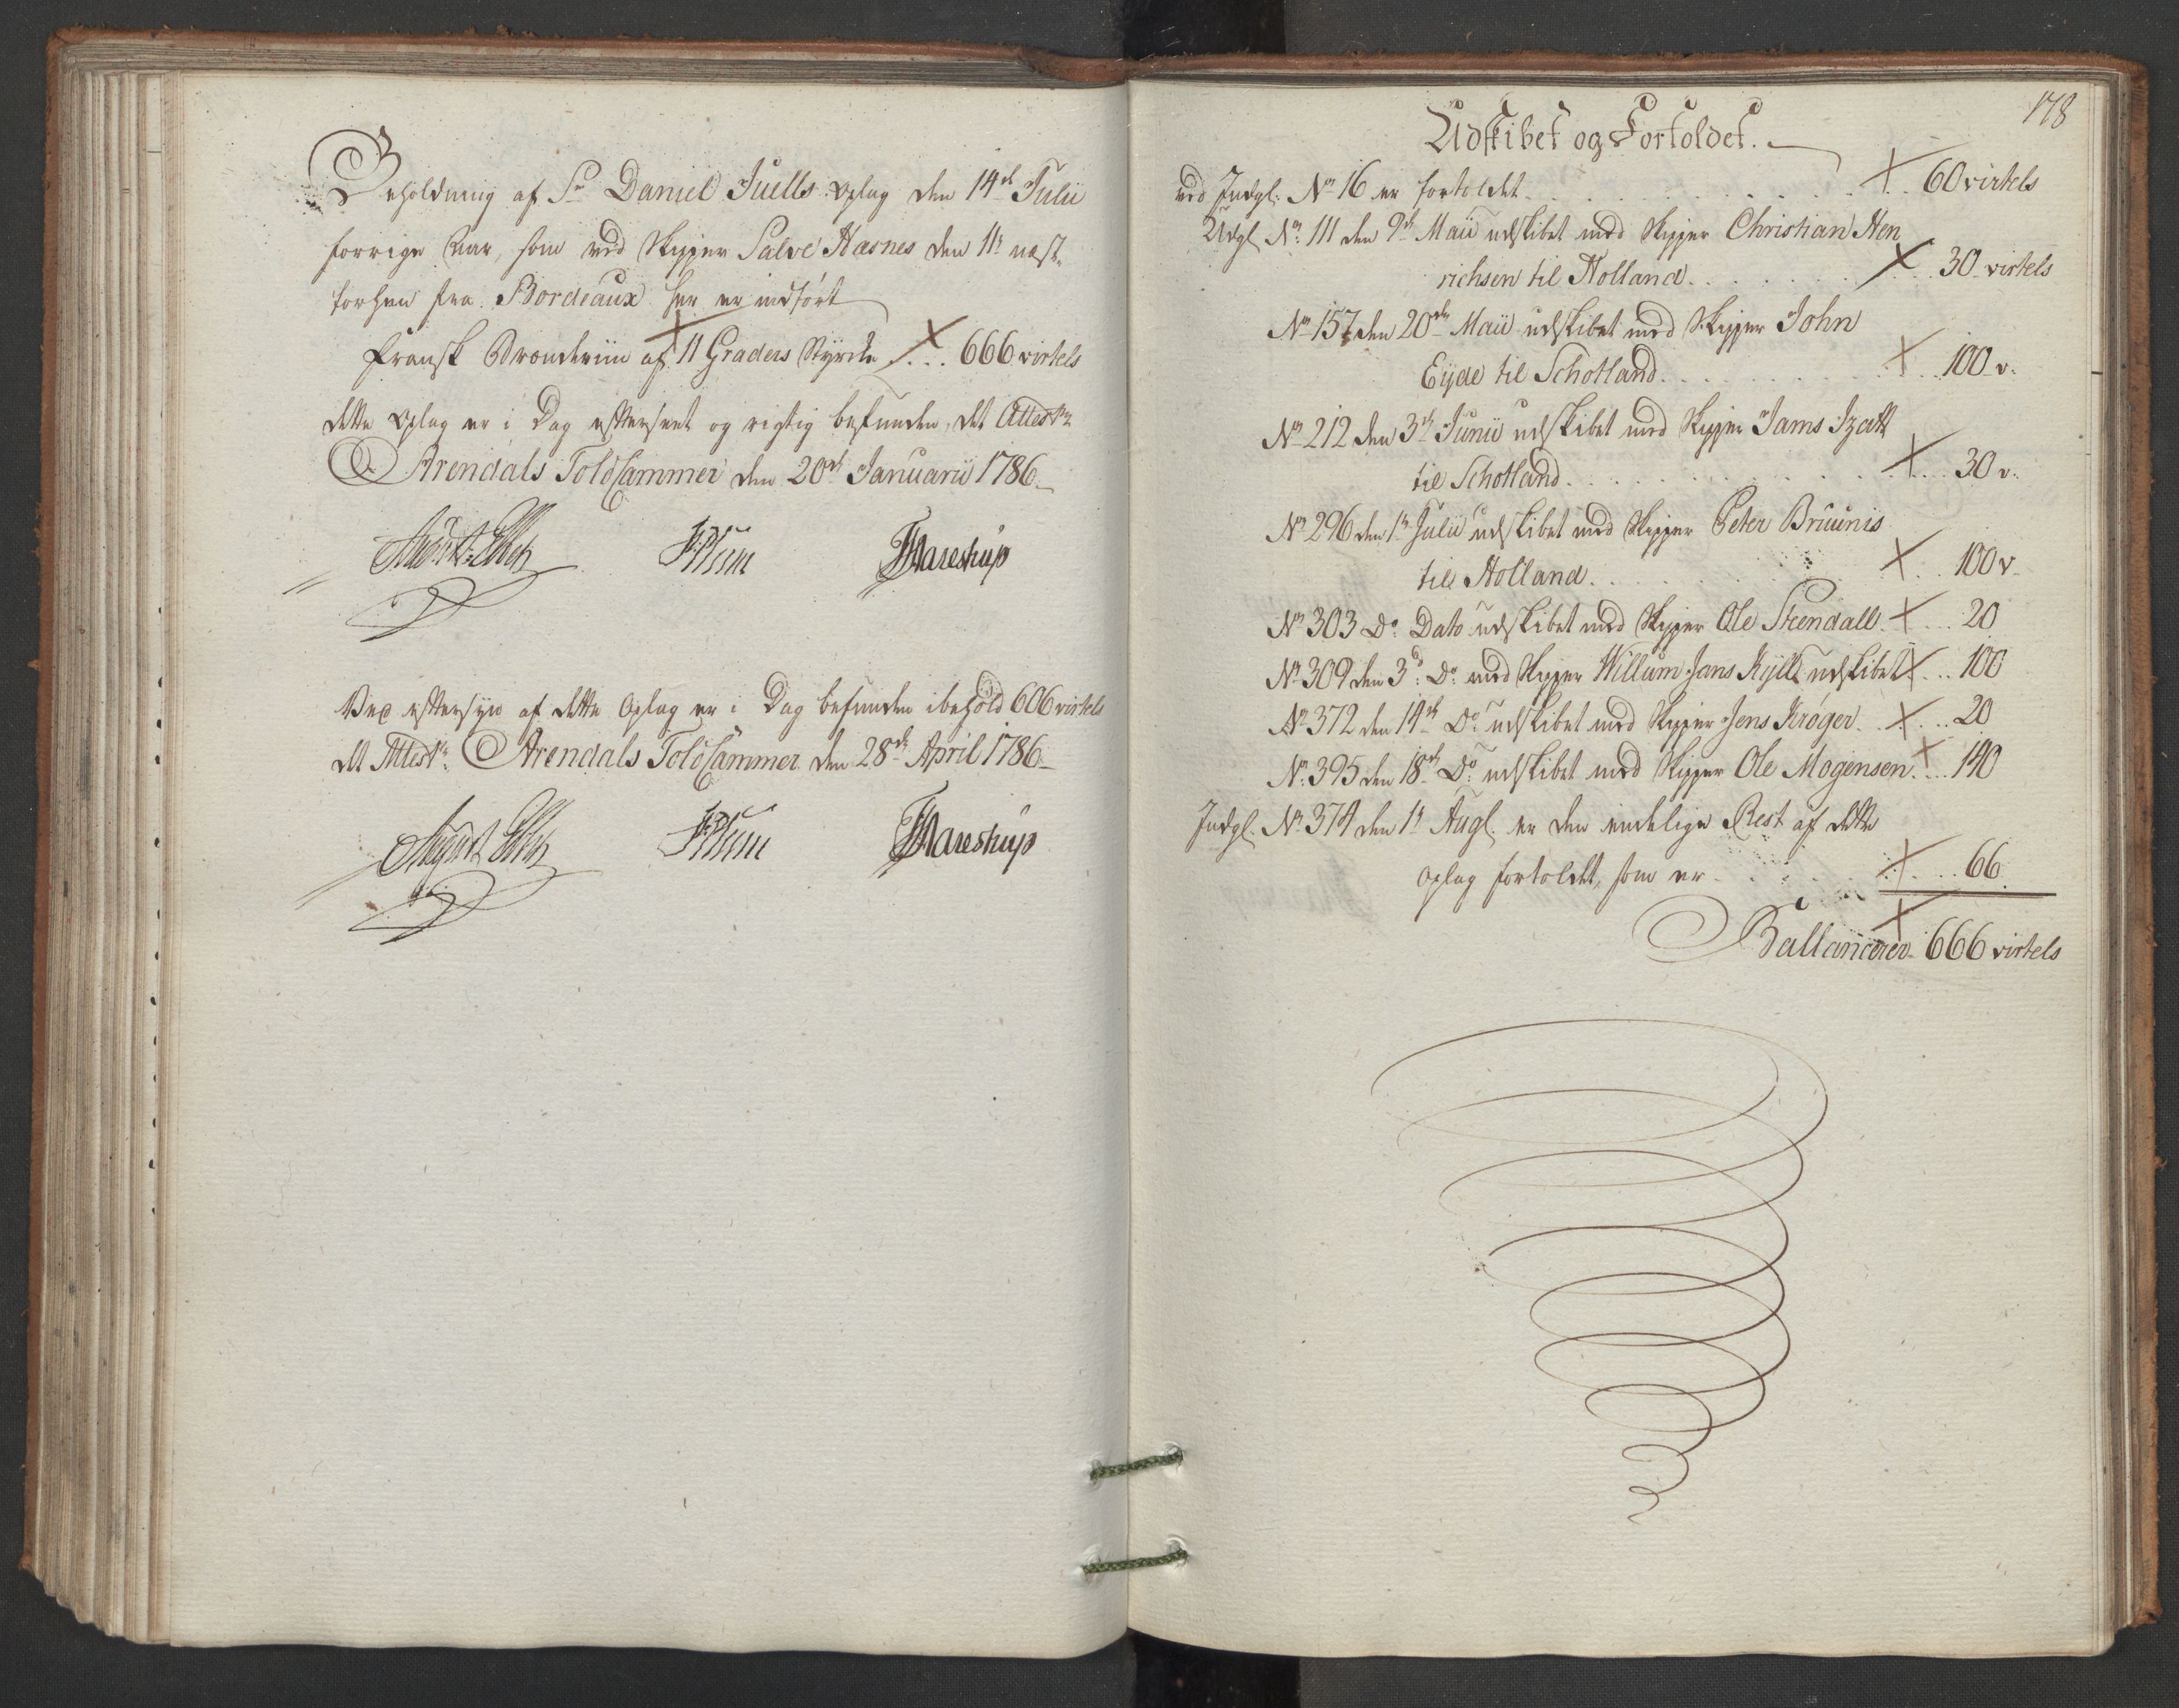 Beholdning af Sr Daniel Juells Oplag den 14de Julii
forrige Aar, som med Skipper Salve Hasnes den 11te næst
forhen fra Bordeaux her er indført
Fransk Brændeviin af 11 Graders Styrcke ... 666 virtels
dette Oplag er i Dag efterseet og rigtig befunden, det Attestr
Arendals ToldCammer den 20de Januarii 1786
Plum
Mareshup
Ved eftersyn af dette Oplag er i Dag befunden i behold 606 virtels
det Attestr: Arendals ToldCammer den 28de April 1786
Plum
Mareshup
178
Udskibet og Fortoldet.
ved Indgl: No 16 er fortoldet ... 60 virtels
Udgl. No: 111 den 9de Maii udskibet med Skipper Christian Hen
richsen til Holland ... 30 virtels
No 157 den 20de Maii udskibet med Skipper John
Eyde til Schotland ... 100 v.
No 212 den 3de Junii udskibet med Skipper Jams Izatt
til Schotland ... 30 v.
No 296 den 1te Julii udskibet med Skipper Peter Bruunis
til Holland ... 100 v
No 303 Do: Dato udskibet med Skipper Ole Stendall ... 20
No 309 den 3de: Do: med Skipper Willum Jans Kyll udskibet ... 100
No 372 den 14de Do: udskibet med Skipper Jens Krøger ... 20
No: 395 den 18de Do: udskibet med Skipper Ole Mogensen ... 140
Indgl. No 374 den 1te Augl. er den endelige Rest af dette
Oplag fortoldet, som er ... 66
Ballancerer 666 virtels